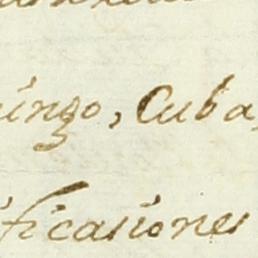 ingo, Cuba,
ificasiones